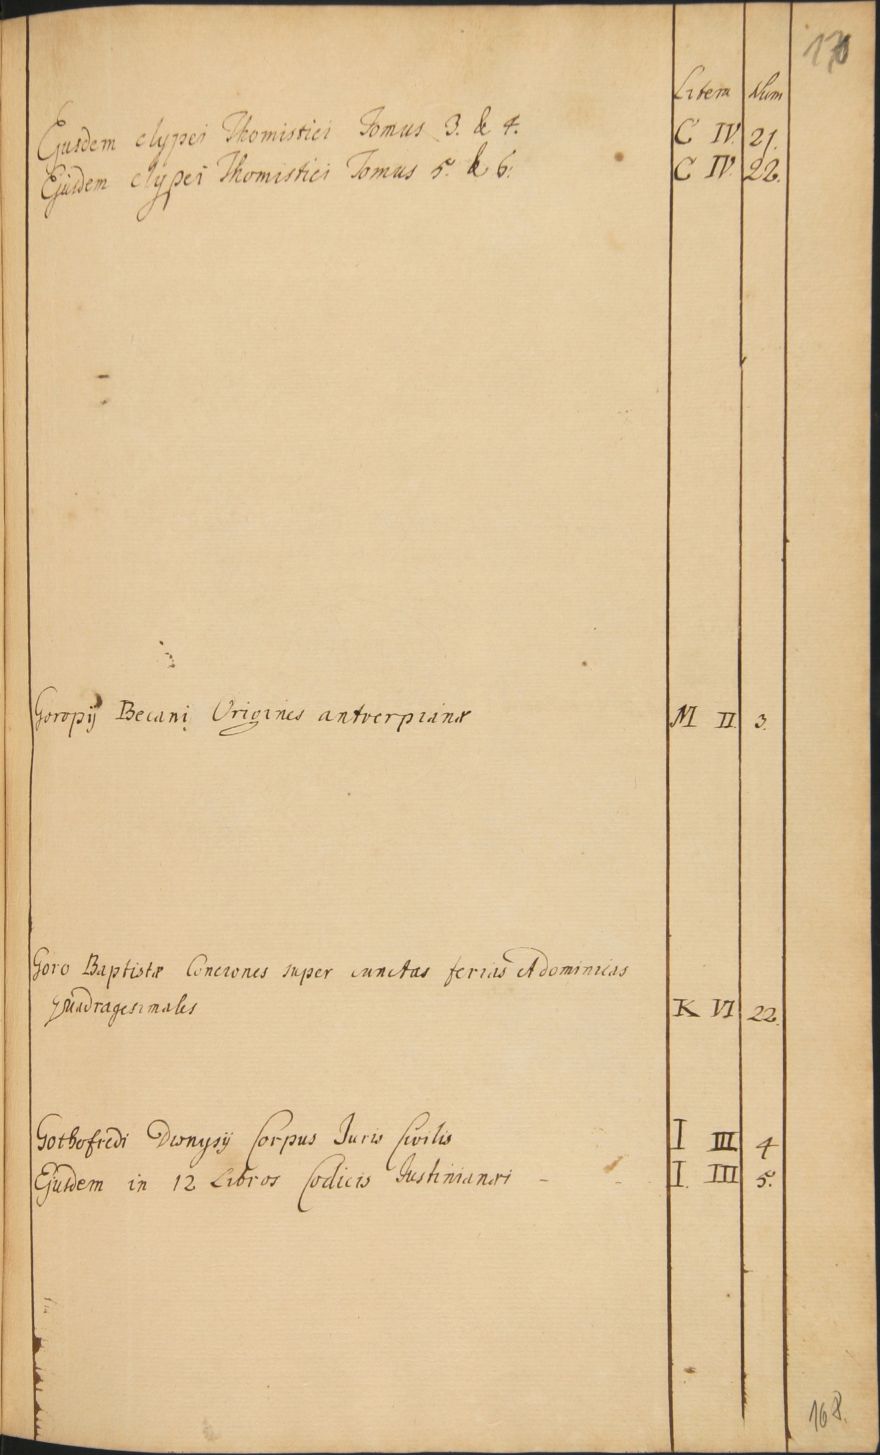 170
Litera Num
Ejusdem clypei Thomistici Tomus 3. & 4. C IV. 21.
Ejusdem clypei Thomistici Tomus 5. & 6. C IV. 22.
Goropij Becani Origines antverpianæ M II 3.
Goro Baptistæ Conciones super cunctas ferias et dominicas
quadragesimales K VI 22.
Gothofredi Dionysij Corpus Juris Civilis I III 4
Ejusdem in 12 Libros Codicis Justinianei - I. III 5.
168.